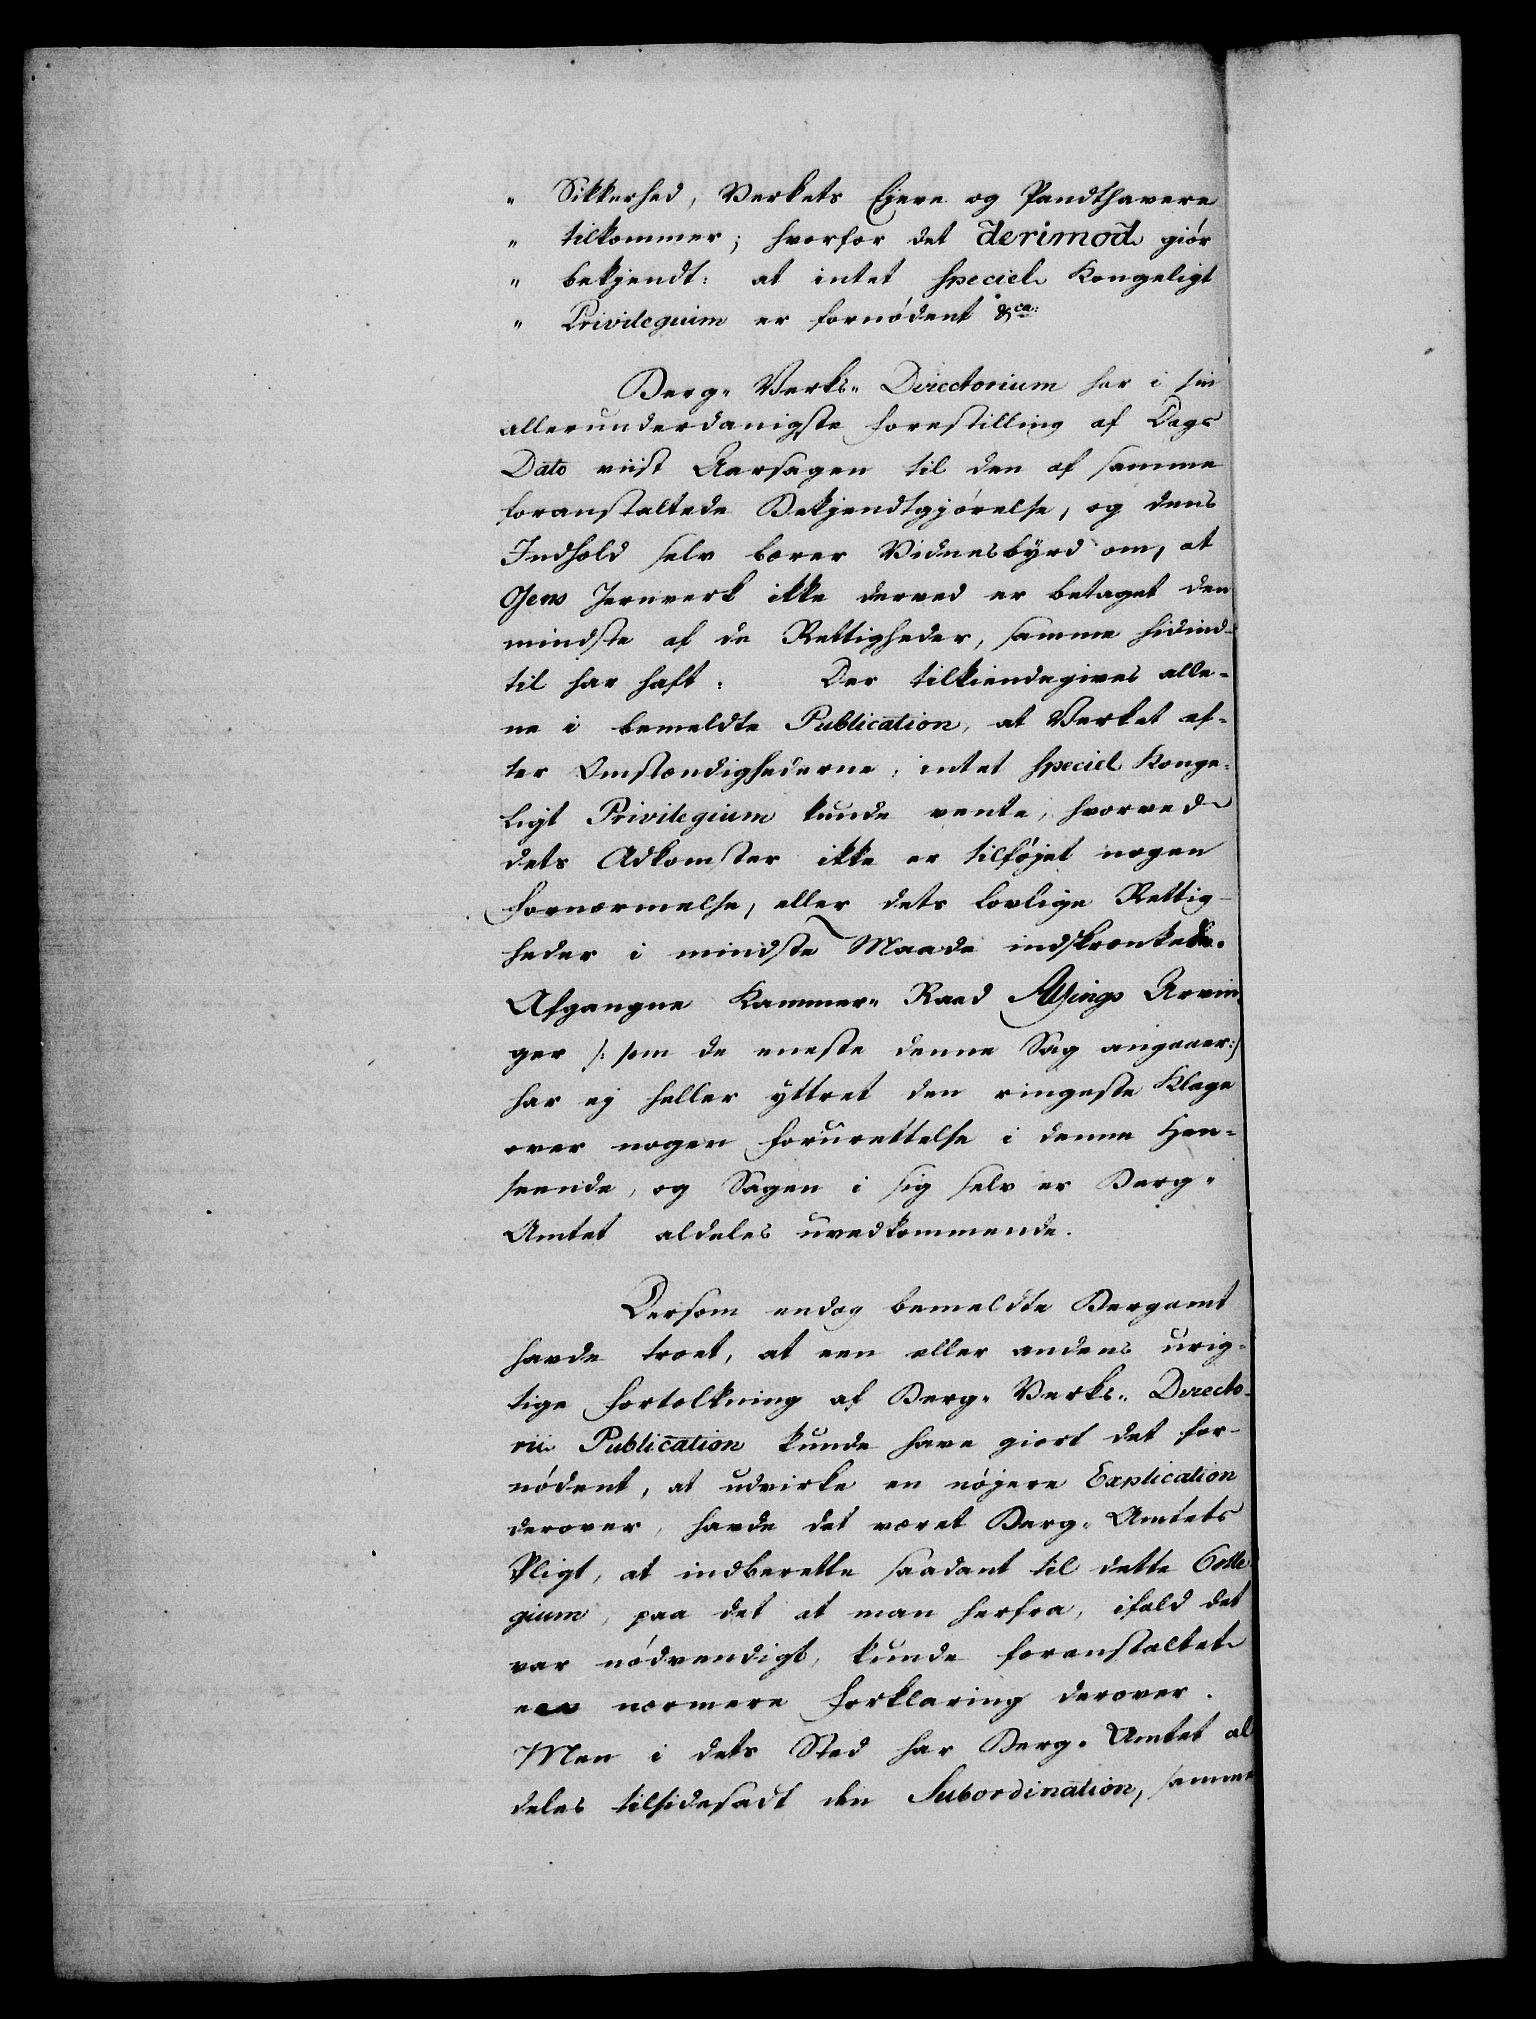 " Sikkerhed, Verkets Ejere og Pandthavere
" tilkommer; hvorfor det derimod giør
" bekjendt: at intet speciel Kongeligt
" Privilegium er fornødent" &ca:
Berg- Verks- Directorium har i sin
allerunderdanigste Forestilling af Dags
Dato viist Aarsagen til den af samme
foranstaltede Bekjendtgjørelse, og dens
Indhold selv bærer Vidnesbyrd om, at
Oiens Jernverk ikke derved er betaget den
mindste af de Rettigheder, samme hidind-
til har haft: Der tilkiendegives alle-
ne i bemeldte Publication, at Verket ef-
ter Omstændighederne, intet speciel Konge-
ligt Privilegium kunde vente, hvorved
dets Adkomster ikke er tilføjet nogen
Fornærmelse, eller dets lovlige Rettig-
heder i mindste Maade indskrænkede.
Afgangne Kammer- Raad Arvin
ger /: som de eneste denne Sag angaaer:/
har ej heller yttret den ringeste Klage
over nogen Forurettelse i denne Hen-
seende, og Sagen i sig selv er Berg-
Amtet aldeles uvedkommende.
Dersom endog bemeldte Bergamt
havde troet, at een eller andens urig-
tige Fortolkning af Berg- Verks- Directo-
rii Publication kunde have giort det for-
nødent, at udvirke en nøjere Explication
derover, havde det været Berg- Amtets
Pligt, at indberette saadant til dette Colle
gium, paa det at man herfra, ifald det
var nødvendigt, kunde foranstaltet
een nærmere Forklaring derover.
Men i dets Sted har Berg- Amtet al
deles tilsidesadt den Subordination, samme